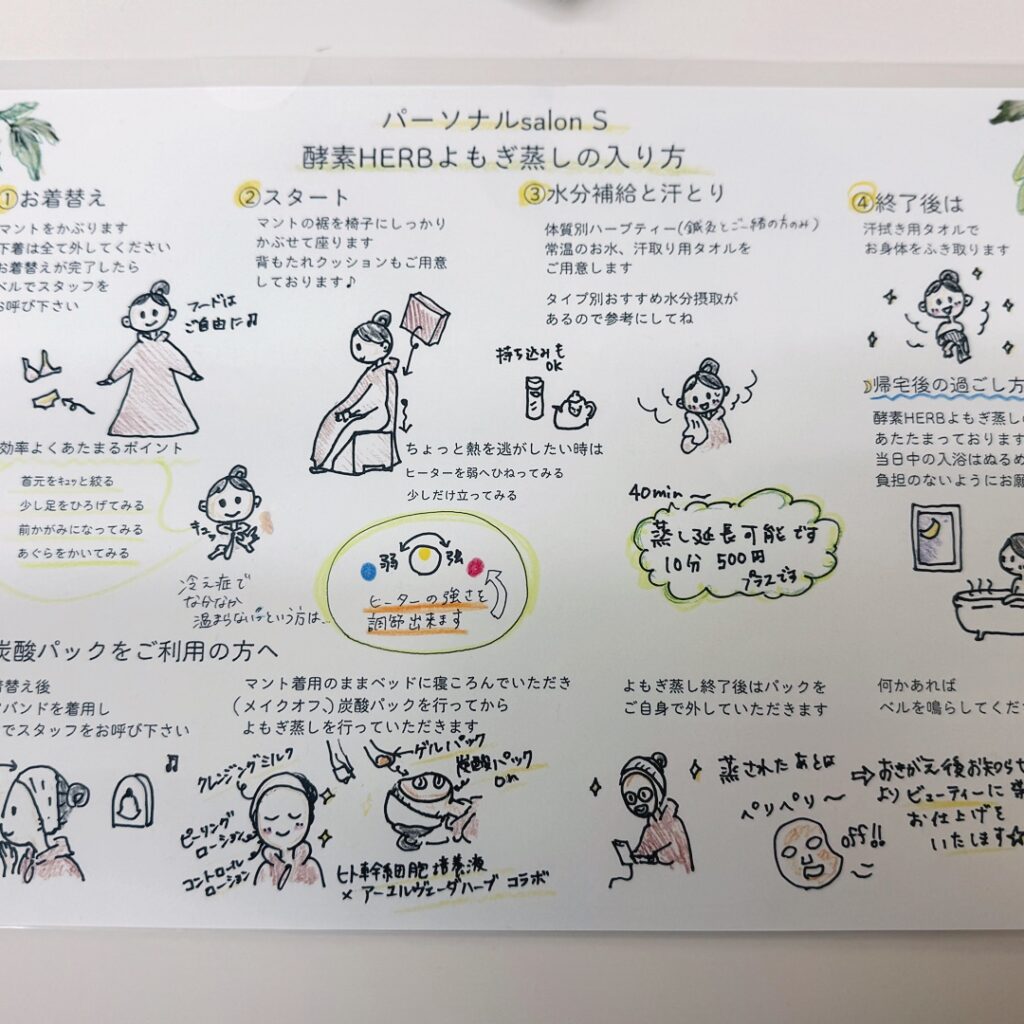 パーソナルsalon S
酵素HERBよもぎ蒸しの入り方
①お着替え
マントをかぶります
下着は全て外してください
お着替えが完了したら
ベルでスタッフを
お呼び下さい
フードは
ご自由に♫
効率よくあたまるポイント
首元をｷｭｯと絞る
少し足をひろげてみる
前かがみになってみる
あぐらをかいてみる
キュッ
冷え症で
なかなか
温まらない…という方は…
②スタート
マントの裾を椅子にしっかり
かぶせて座ります
背もたれクッションもご用意
しております♪
ちょっと熱を逃がしたい時は
ヒーターを弱へひねってみる
少しだけ立ってみる
弱 強
ヒーターの強さを
調節出来ます
③水分補給と汗とり
体質別ハーブティー(鍼灸とご一緒の方のみ)
常温のお水、汗取り用タオルを
ご用意します
タイプ別おすすめ水分摂取が
あるので参考にしてね
持ち込みも
OK
40min〜
蒸し延長可能です
10分 500円
プラスです
④終了後は
汗拭き用タオルで
お身体をふき取ります
帰宅後の過ごし方
酵素HERBよもぎ蒸し
あたたまっております
当日中の入浴はぬるめ
負担のないようにお願
炭酸パックをご利用の方へ
着替え後
バンドを着用し
でスタッフをお呼び下さい
♫
マント着用のままベッドに寝ころんでいただき
(メイクオフ、)炭酸パックを行ってから
よもぎ蒸しを行っていただきます
クレンジングミルク
ピーリング
ローション
コントロール
ローション
ゲルパック
炭酸パック
on
ヒト幹細胞培養液
× アーユルヴェーダハーブ コラボ
よもぎ蒸し終了後はパックを
ご自身で外していただきます
蒸されたあとは
ペリペリ〜
off!!
何かあれば
ベルを鳴らしてくだ
⇨おきがえ後お知らせ
よりビューティーに
お仕上げを
いたします☆